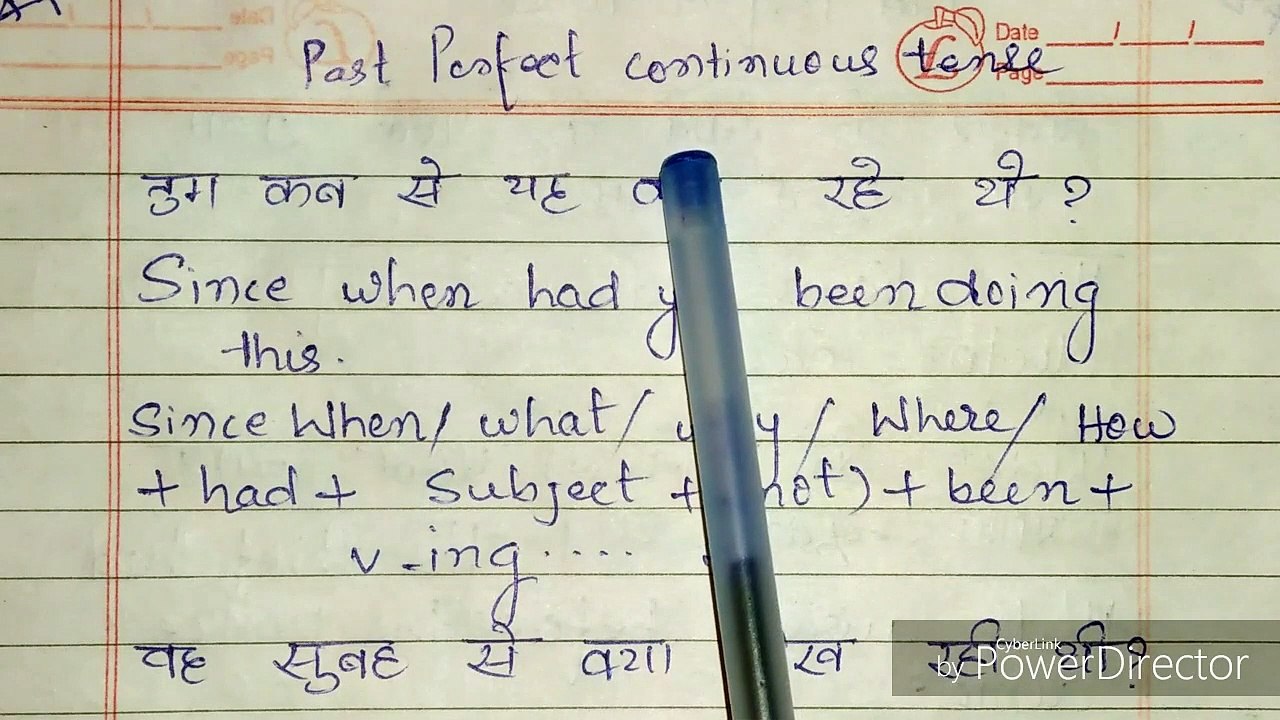 Date / /
Page
Past Perfect continuous tense
तुम कब से यह रहे थे ?
Since when had been doing
this.
Since When/ what/ / Where/ How
+ had + Subject + not) + been +
v-ing ....
वह सुबह से क्या रही थी?
CyberLink
by PowerDirector